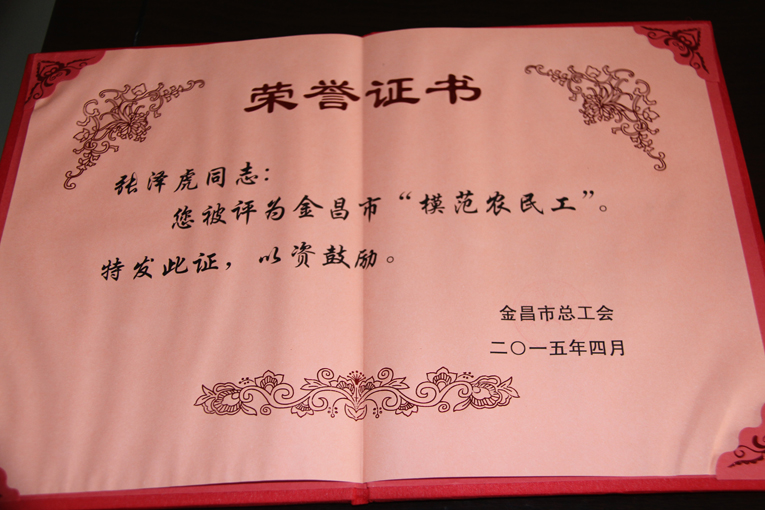 荣誉证书
张泽虎同志：
您被评为金昌市“模范农民工”。
特发此证，以资鼓励。
金昌市总工会
二〇一五年四月